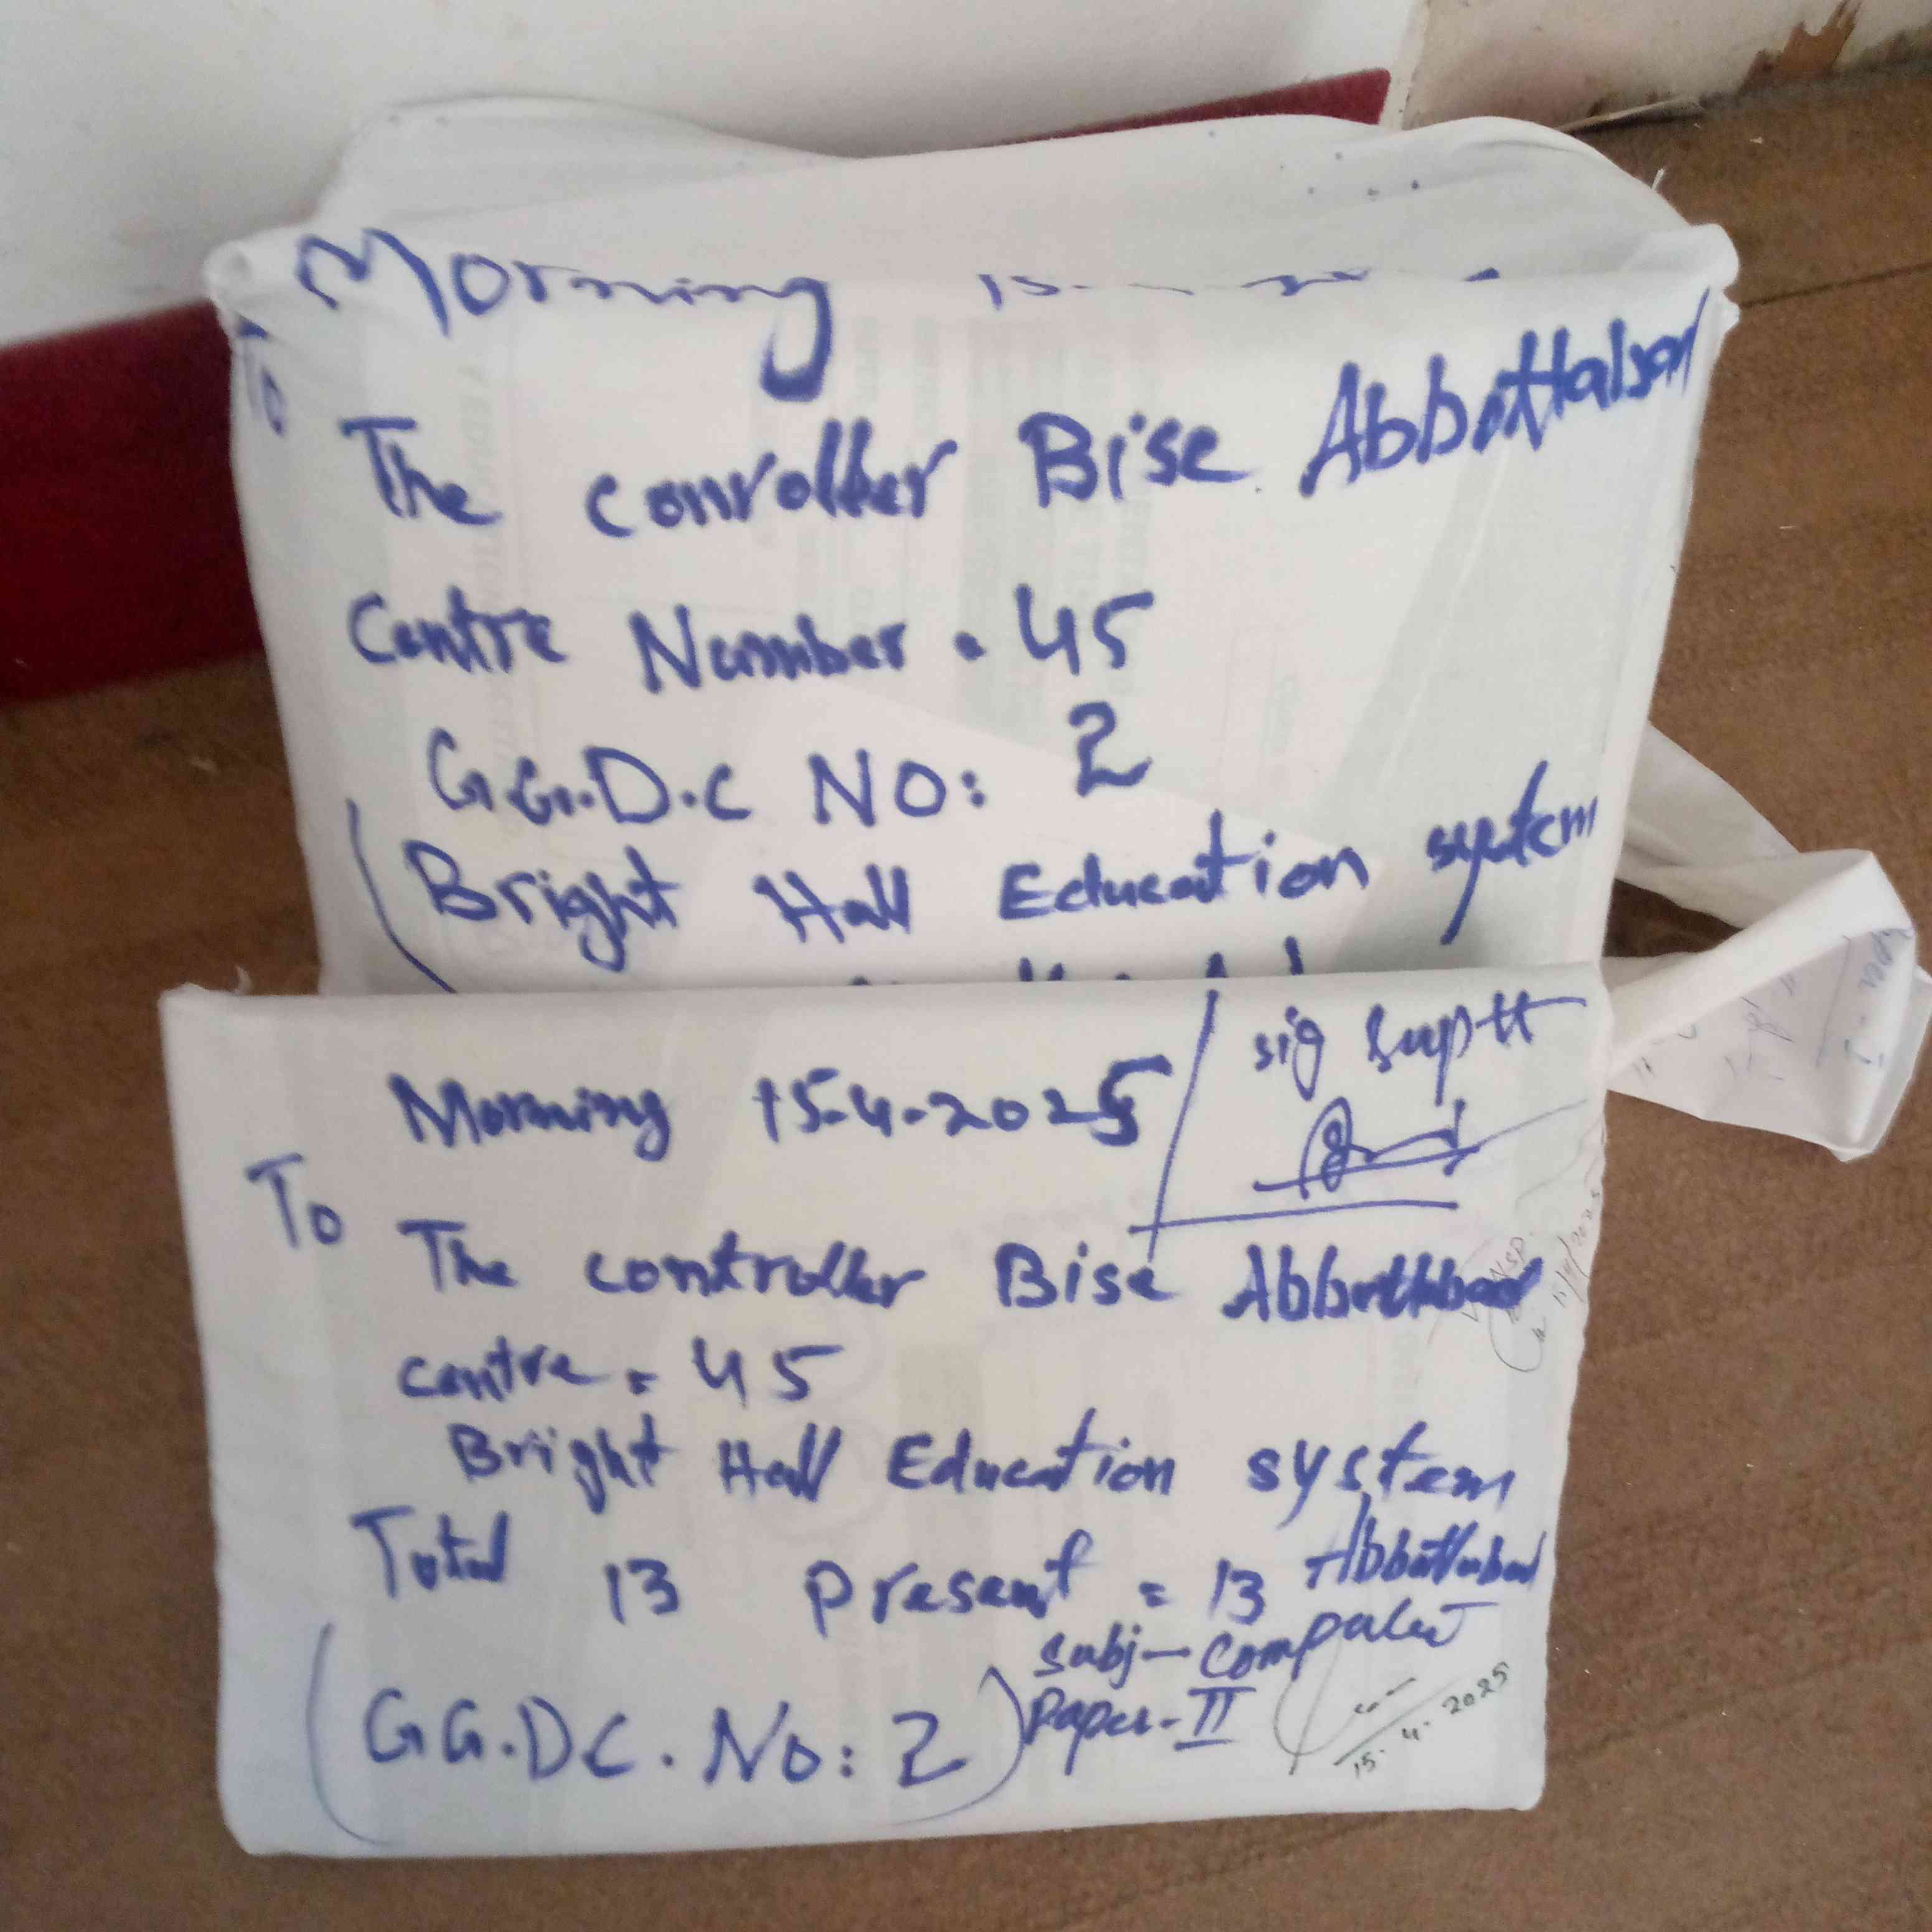 Morning
To
The Conroller Bise Abbottabad
Centre Number = 45
G.G.D.C NO: 2
(Bright Hall Education system
Morning 15-4-2025
sig Suptt
To
The controller Bise Abbottabad
centre = 45
Bright Hall Education system
Abbottabad
Total 13 Present = 13
Subj - Computer
Paper - II
(G.G.D.C. No: 2)
15-4-2025